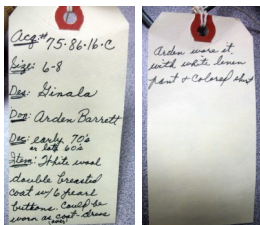 Acq# 75-86-16-C
Size: 6-8
Des: Ginala
Don: Arden Barrett
Dec: early 70's
or late 60's
Item: White wool
double breasted
coat w/6 pearl
buttons. Could be
worn as coat-dress
Arden wore it
with white linen
pant & colored shirt